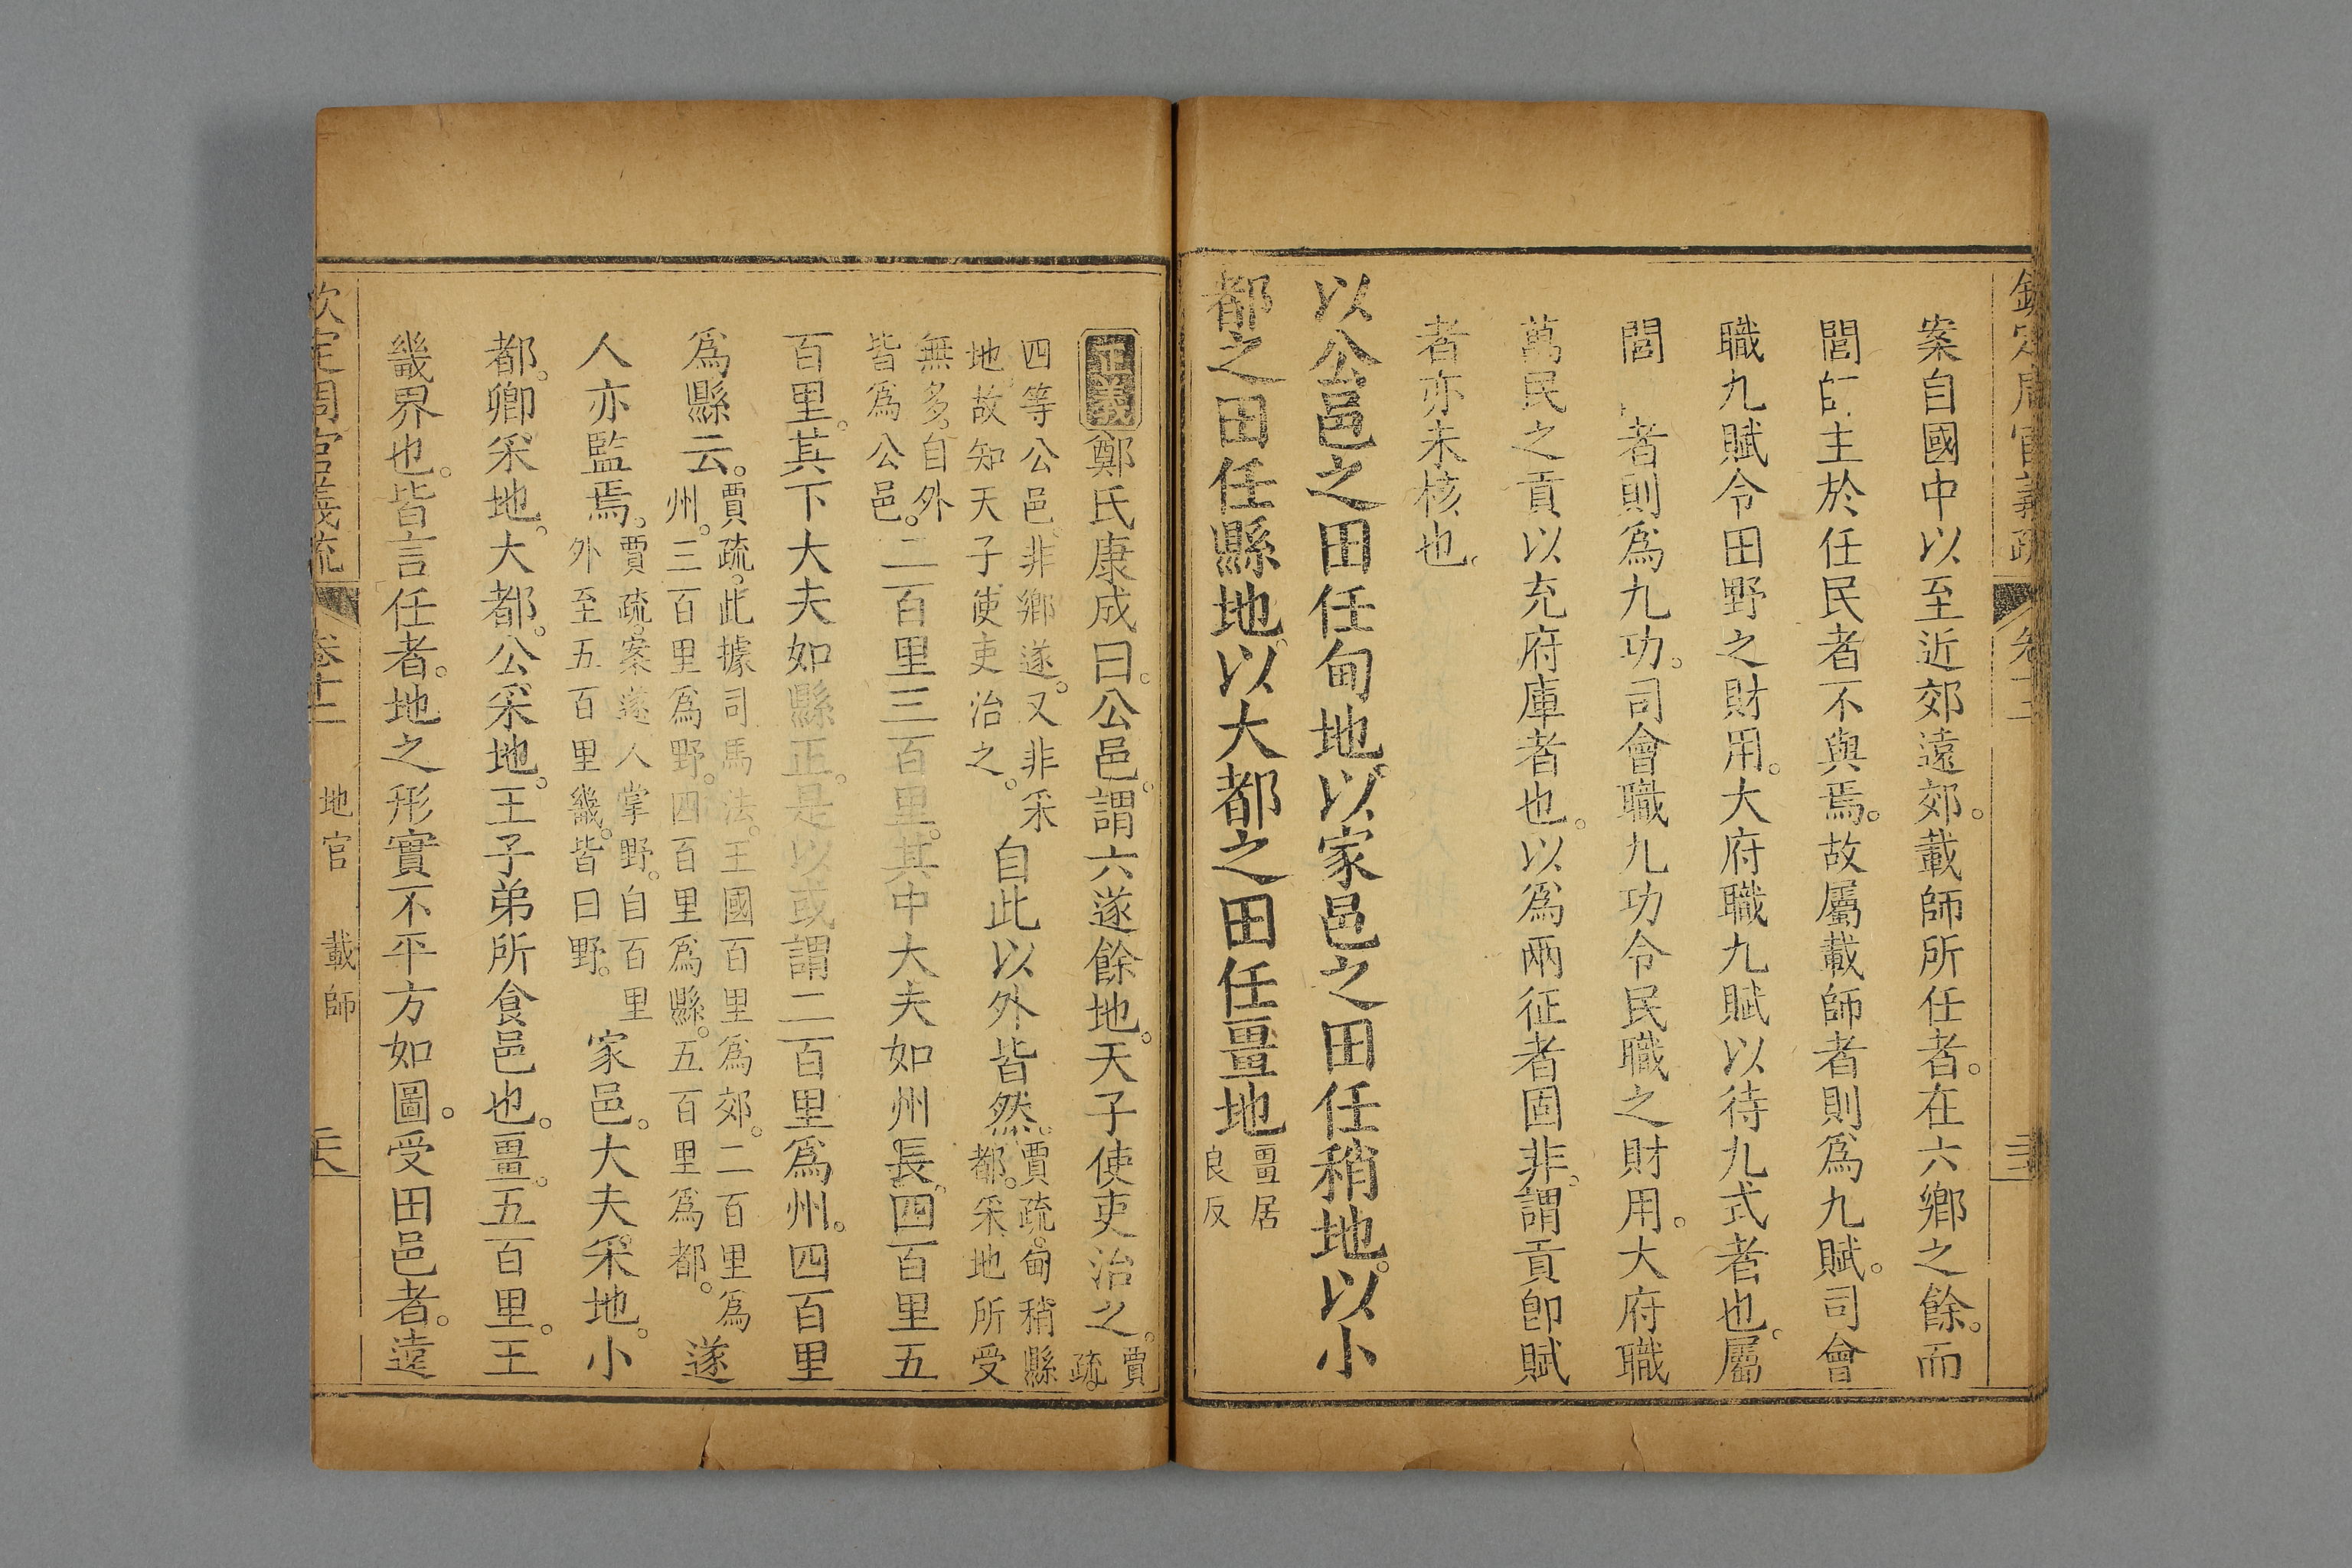 案自國中以至近郊遠郊。載師所任者。在六鄉之餘。而
閭師主於任民者不與焉。故屬載師者則爲九賦。司會
職九賦令田野之財用。大府職九賦以待九式者也。屬
閭者則爲九功。司會職九功令民職之財用。大府職
萬民之貢以充府庫者也。以爲兩征者固非。謂貢卽賦
者亦未核也。
以公邑之田任甸地。以家邑之田任稍地。以小
都之田任縣地。以大都之田任畺地畺居良反
正義鄭氏康成曰。公邑。謂六遂餘地。天子使吏治之。賈疏。
四等公邑。非鄉遂。又非采地。故知天子使吏治之。自此以外皆然。賈疏。甸稍縣都。采地所受
無多。自外皆爲公邑。二百里三百里。其中大夫如州長。四百里五
百里。其下大夫如縣正。是以或謂二百里爲州。四百里
爲縣云。賈疏。此據司馬法。王國百里爲郊。二百里爲州。三百里爲野。四百里爲縣。五百里爲都。遂
人亦監焉。賈疏。案遂人掌野。自百里外至五百里畿。皆曰野。家邑。大夫采地。小
都。卿采地。大都。公采地。王子弟所食邑也。畺。五百里。王
畿界也。皆言任者。地之形實不平方如圖。受田邑者。遠
欽定周官義疏 卷十二 地官 載師